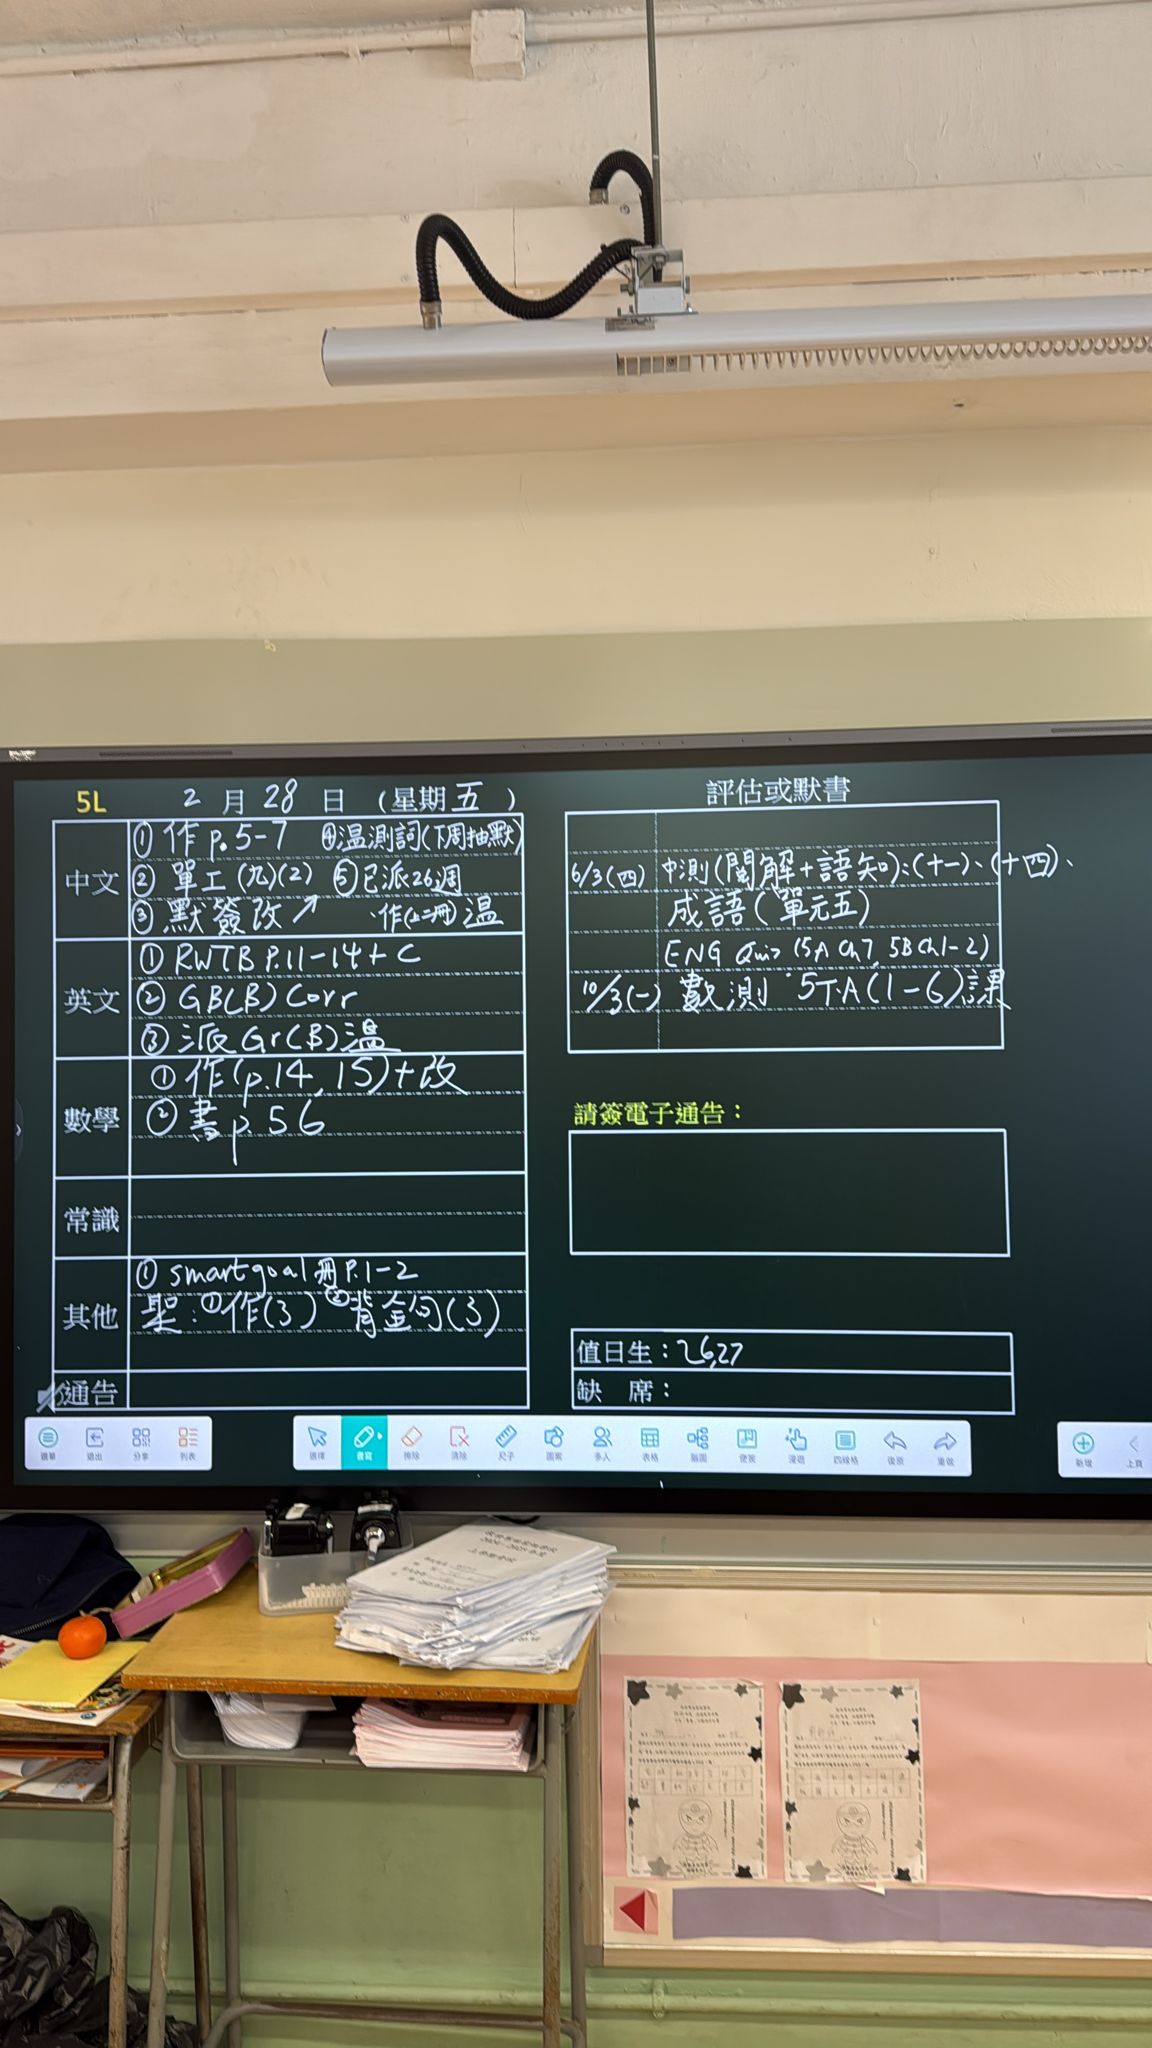 5L 2月28日(星期五)
中文
①作p.5-7 ④温測詞(下周抽默)
②單工(九)(2) ⑤已派26週
③默簽改↗ 作(上二冊)温
英文
①RWTB P.11-14+C
②GB(B)Corr
③派Gr(B)温
數學
①作(p.14,15)+改
②書p.56
常識
其他
①smartgoal冊P.1-2
聖:①作(3) ②背金句(3)
通告
評估或默書
6/3(四) 中測(閱解+語知):(十一)、(十四)、
成語(單元五)
ENG Quiz (5A Ch7, 5B Ch1-2)
10/3(一) 數測 5T.A(1-6)課
請簽電子通告:
值日生:26,27
缺 席:
選單 退出 分享 列表 選擇 書寫 擦除 清除 尺子 圖案 多人 表格 腦圖 便簽 漫遊 四線格 復原 重做 新增 上頁